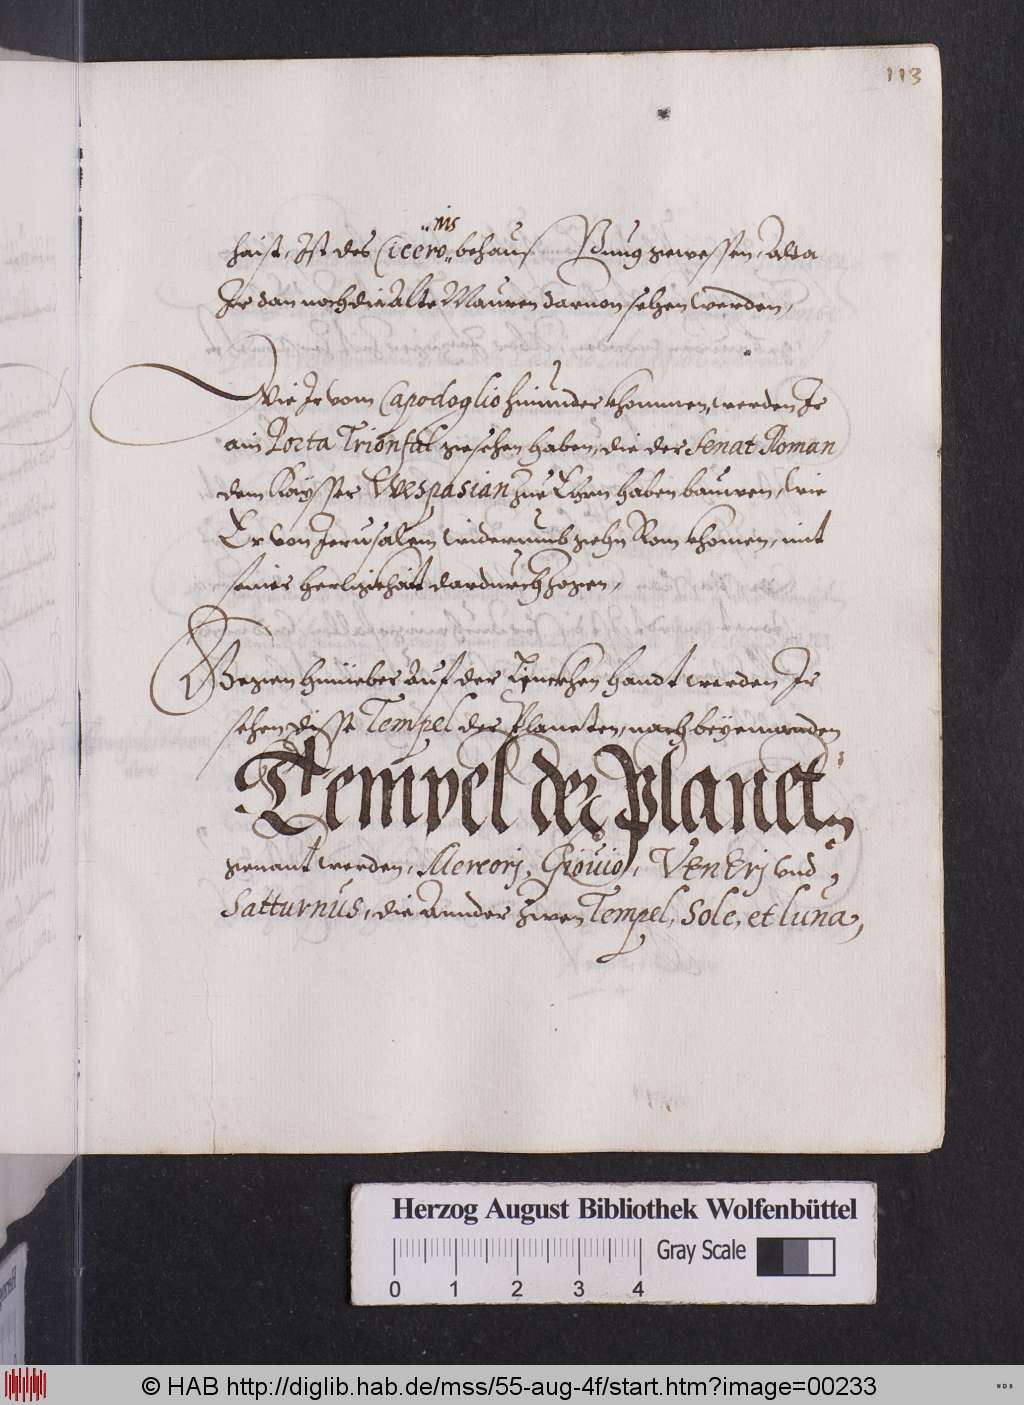 113
haist, Ist des Ciceronis behausung gewessen, Alda
Jr dan noch die Alte Mauren daruon sehen werden,
Wie Jr vom Capodoglio hinunder khommen, werden Jr
ain Porta Trionfal gesehen haben, die der Senat Roman
dem Kaysser Wespasian zue Ehren haben bauwen, wie
Er von Jerusalem widerumb gehn Rom khomen, mit
seiner herligkhait dardurch zogen,
Gegen hinüeber Auf der Linckhen handt werden Jr
sehen disse Tempel der Planeten, nach beyemanden
Tempel der Planetn
genant werden, Mercorj, Giouio, Venerj vnd
Satturnus, die Annder zwen Tempel, Sole, et luna,
Herzog August Bibliothek Wolfenbüttel
Gray Scale
0 1 2 3 4
© HAB http://diglib.hab.de/mss/55-aug-4f/start.htm?image=00233